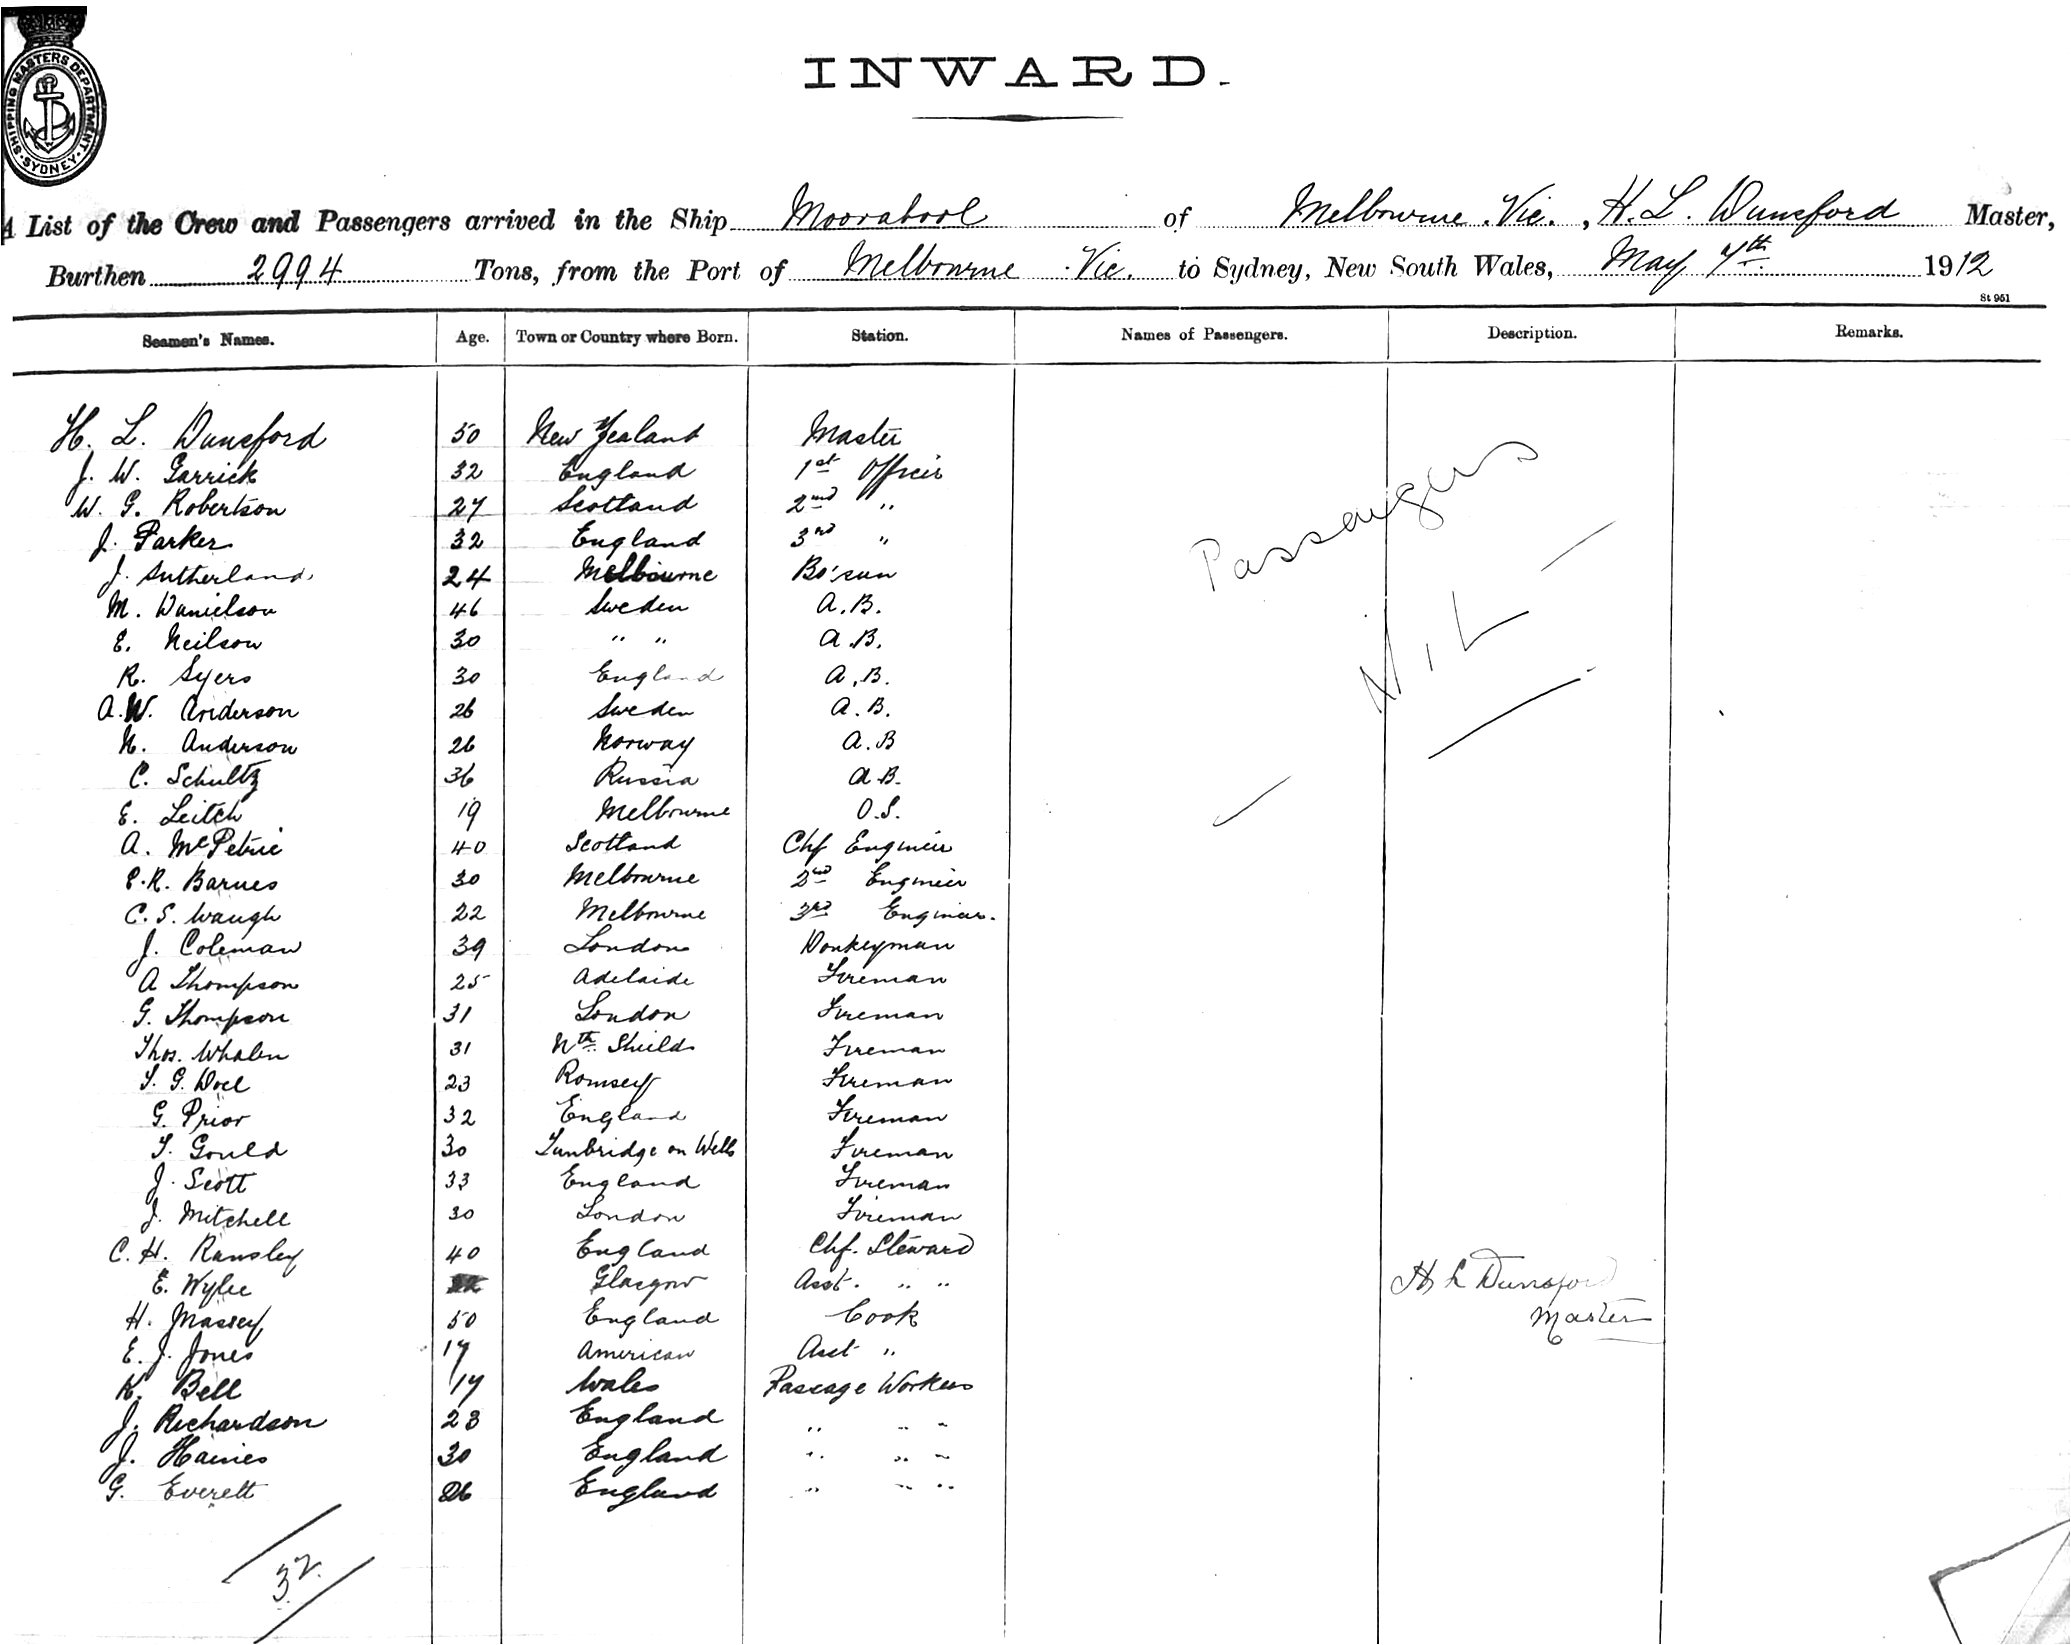 SHIPPING MASTERS DEPARTMENT. SYDNEY.
INWARD.
A List of the Crew and Passengers arrived in the Ship Moorabool of Melbourne. Vic., H. L. Dunsford Master,
Burthen 2994 Tons, from the Port of Melbourne Vic. to Sydney, New South Wales, May 7th 1912
St 951
Seamen's Names. Age. Town or Country where Born. Station. Names of Passengers. Description. Remarks.
H. L. Dunsford 50 New Zealand Master
J. W. Garrick 32 England 1st Officer
W. G. Robertson 27 Scotland 2nd "
J. Parker 32 England 3rd "
J. Sutherland 24 Melbourne Bo'sun
M. Danielson 46 Sweden A.B.
E. Neilson 30 " " A.B.
R. Syers 30 England A.B.
A. W. Anderson 26 Sweden A.B.
N. Anderson 26 Norway A.B
C. Schultz 36 Russia A.B.
E. Leitch 19 Melbourne O.S.
A. McPetrie 40 Scotland Chf Engineer
E. R. Barnes 30 Melbourne 2nd Engineer
C. S. Waugh 22 Melbourne 3rd Engineer.
J. Coleman 39 London Donkeyman
A Thompson 25 Adelaide Fireman
G. Thompson 31 London Fireman
Thos. Whalen 31 Nth. Shields Fireman
T. G. Doel 23 Romsey Fireman
G. Prior 32 England Fireman
T. Gould 30 Tunbridge on Wells Fireman
J. Scott 33 England Fireman
J. Mitchell 30 London Fireman
C. H. Ransley 40 England Chf. Steward
E. Wylie Glasgow Asst. " "
H. Massey 50 England Cook
E. J. Jones 17 American Asst "
K. Bell 17 Wales Passage Workers
J. Richardson 23 England " " "
J. Haines 30 England " " "
G. Everett 26 England " " "
32
Passengers
NIL
H L Dunsford
Master